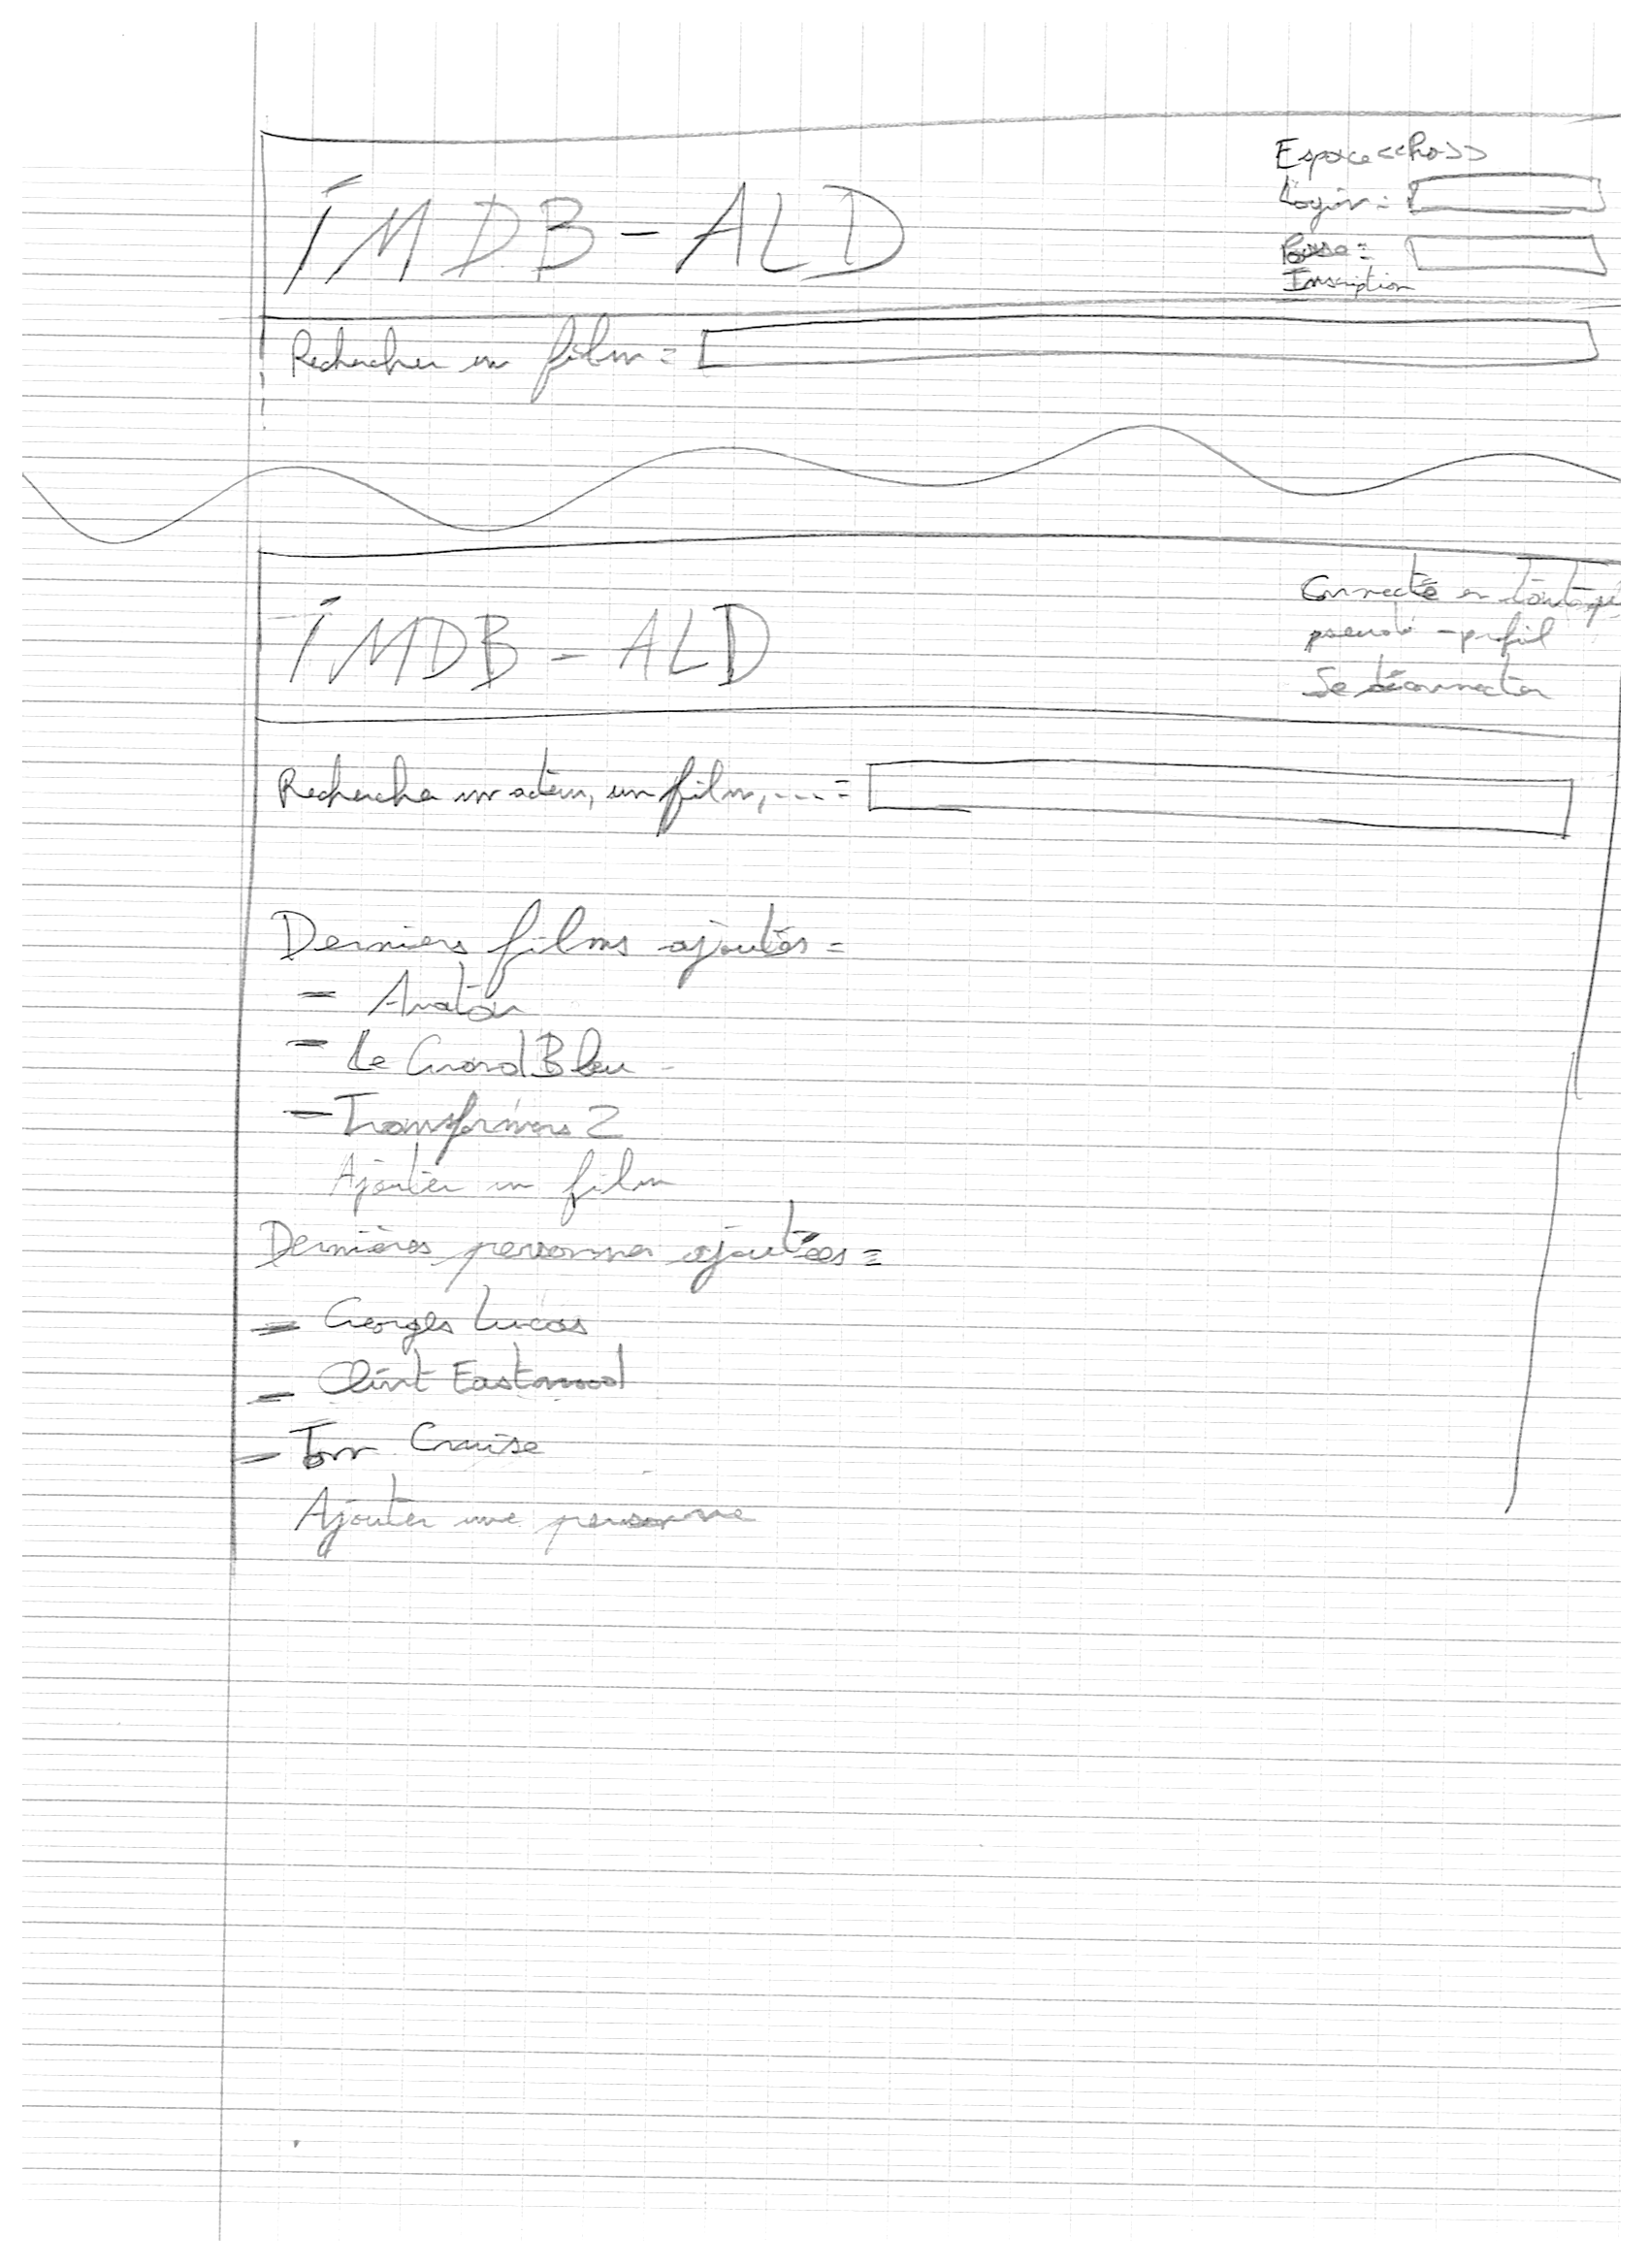 IMDB-ALD
Espace <<Pro>>
Login:
Passe:
Inscription
Rechercher un film:
IMDB-ALD
Connecté en tant que
pseudo - profil
Se déconnecter
Rechercher un acteur, un film, ... :
Derniers films ajoutés:
- Avatar
- Le Grand Bleu
- Transformers 2
Ajouter un film
Dernières personnes ajoutées:
- Georges Lucas
- Clint Eastwood
- Tom Cruise
Ajouter une personne